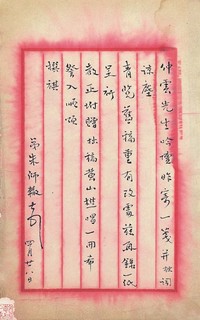 仲雲先生吟壇昨寄一箋并拙詞
諒塵
青覽舊稿重有改處茲再錄一紙
呈祈
教正附贈拙稿黃山樵唱一冊希
詧入順頌
撰祺
弟朱師轍
四月廿八日